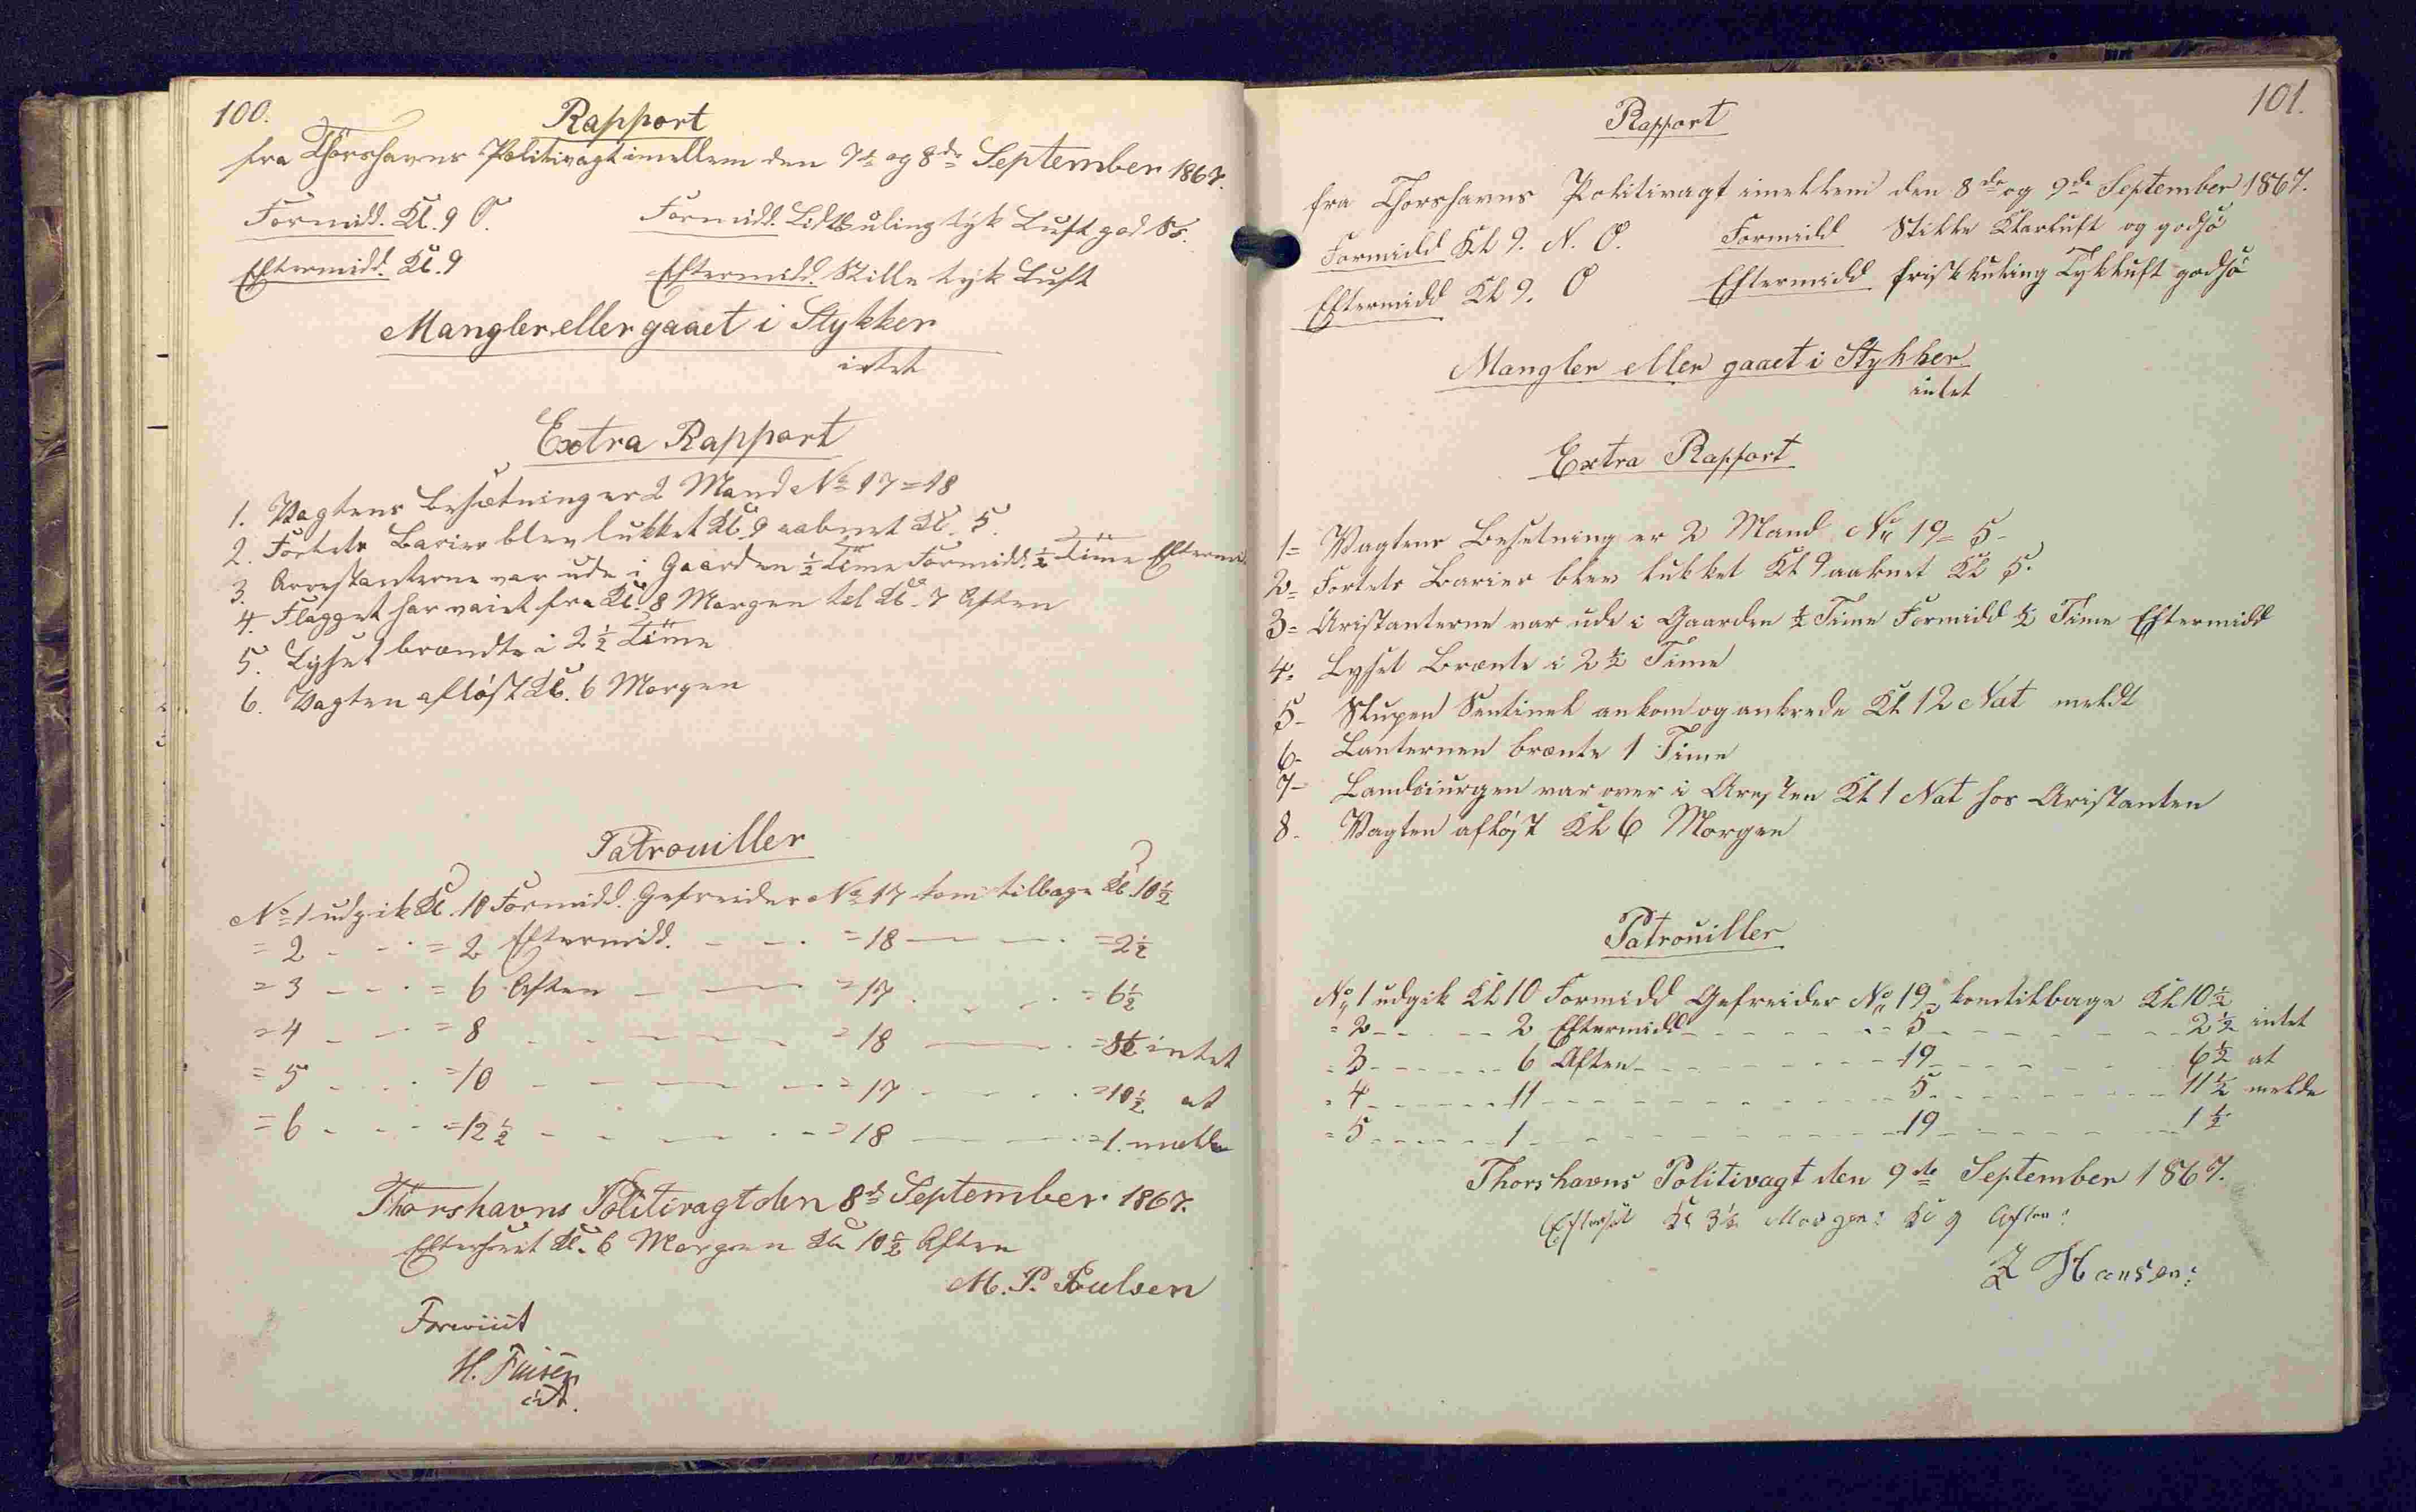 100.
Rapport
fra Thorshavns Politivagt imellem den 7de og 8de September 1867.
Formidd. Kl. 9 O. Formidd. Lidt Kuling tyk Luft god Sø.
Eftermidd. Kl. 9 Eftermidd. Stille tyk Luft
Mangler eller gaaet i Stykker
intet
Extra Rapport
1. Vagtens Besætning er 2 Mand No 17 = 18
2. Fortets Barier blev lukket Kl. 9 aabnet Kl. 5.
3. Arrestanterne var ude i Gaarden ½ Time Formidd. ½ Time Eftermi
4. Flagget har vaiet fra Kl. 8 Morgen til Kl. 7 Aften
5. Lyset brændte i 2½ Time
6. Vagten afløst Kl. 6 Morgen
Patrouiller
No 1 udgik Kl. 10 Formidd. Gefreider No 17 kom tilbage Kl. 10½
= 2 - - · = 2 Eftermidd. - - · = 18 - - · = 2½
= 3 - - · = 6 Aften - - = 17 · - · = 6½
= 4 - - · = 8 - - - - = 18 - · = 8½ intet
= 5 - - · = 10 - - - - = 17 - - · = 10½ at
= 6 - - · = 12½ - - - - = 18 - · = 1. melde
Thorshavns Politivagt den 8de September 1867.
Efterseet Kl. 6 Morgen Kl. 10½ Aften
M. P. Poulsen
Foreviist
H. Finsen
cst.
101.
Rapport
fra Thorshavns Politivagt imellem den 8de og 9de September 1867.
Formidd Kl 9. N. O. Formidd Stille Klarluft og godsø
Eftermidd Kl 9. O Eftermidd friskkuling Tykluft godsø
Mangler eller gaaet i Stykker
intet
Extra Rapport
1= Vagtens Besetning er 2 Mand No 19 = 5-
2= Fortets Barier blev lukket Kl 9 aaknet Kl 5.
3= Aristanterne var ude i Gaarden ½ Time Formidd ½ Time Eftermidd
4= Lyset Brænte i 2½ Time
5- Slupen Sentinel ankom og ankrede Kl 12 Nat meldt
6- Lanternen brænte 1 Time
7- Landciurgen var over i Aresten Kl 1 Nat hos Aristanten
8. Vagten afløst Kl 6 Morgen
Patrouiller
No 1 udgik Kl 10 Formidd Gefreider No 19 - komtilbage Kl 10½
= 2 - - - - 2 Eftermidd - - - - 5 - - - - 2½ intet
= 3 - - - - 6 Aften - - - - 19 - - - - 6½ at
= 4 - - - - 11 - - - - 5 - - - - 11½ melde
= 5 - - - - 1 - - - - 19 - - - - 1½
Thorshavns Politivagt den 9de September 1867.
Kl 3½ Morgen: Kl 9 Aften:
Z Hansen: